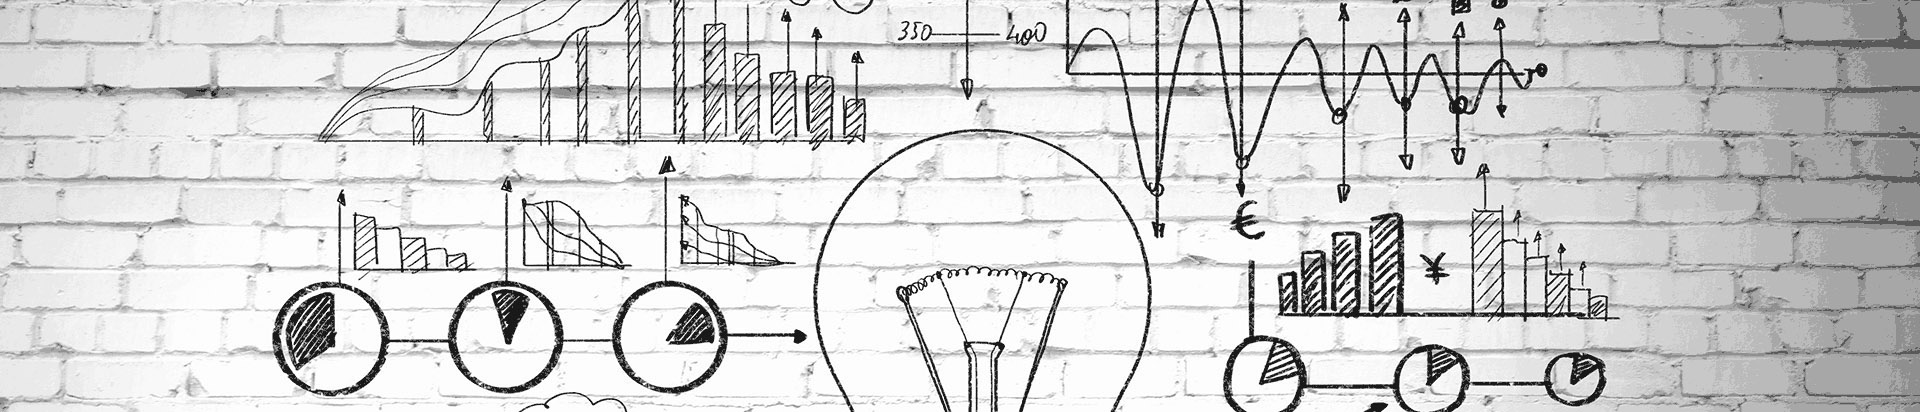 350 — 400
€
¥